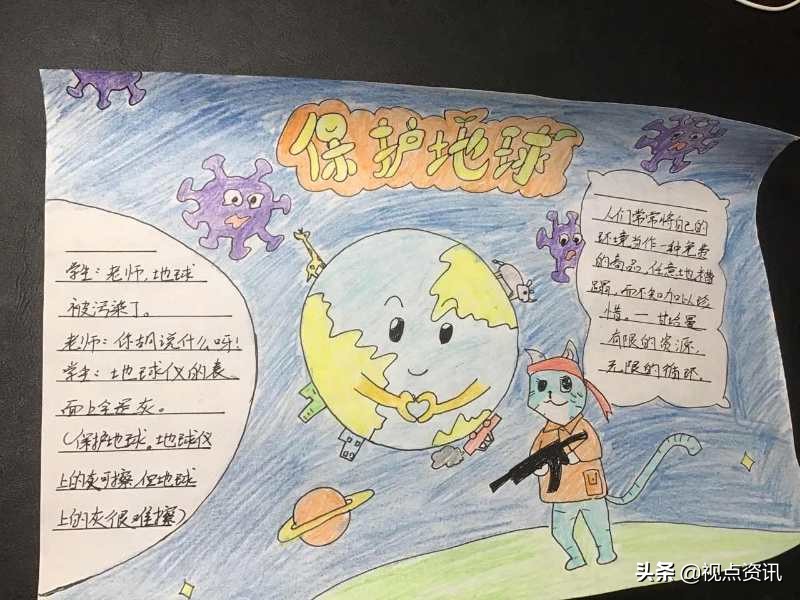 保护地球
学生：老师，地球
被污染了。
老师：你胡说什么呀！
学生：地球仪的表
面上全是灰。
（保护地球。地球仪
上的灰可擦，但地球
上的灰很难擦）
人们常常将自己的
环境当作一种免费
的商品，任意地糟
蹋，而不知加以珍
惜。——甘哈曼
有限的资源，
无限的循环。
头条 @视点资讯